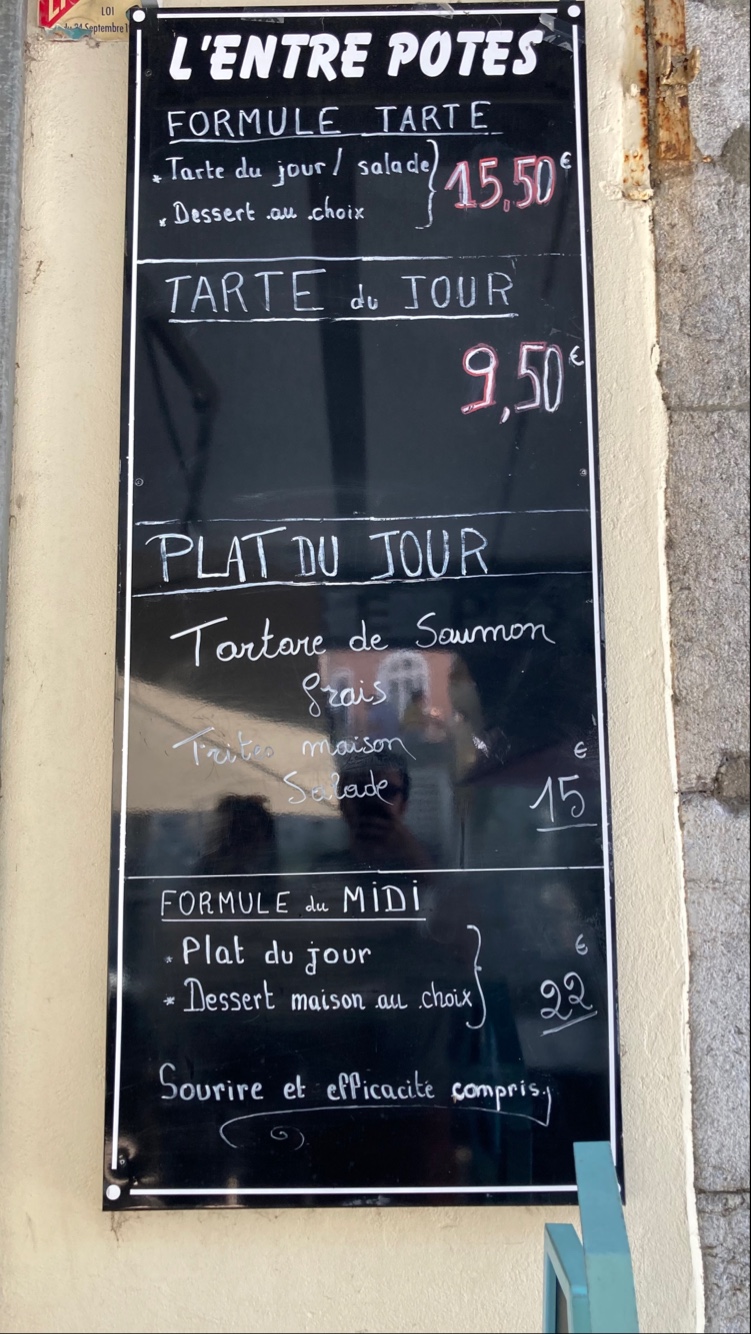 LOI
du 24 Septembre 1
L'ENTRE POTES
FORMULE TARTE
* Tarte du jour / salade
* Dessert au choix
15,50€
TARTE du JOUR
9,50€
PLAT DU JOUR
Tartare de Saumon
frais
Frites maison
Salade
15€
FORMULE du MIDI
* Plat du jour
* Dessert maison au choix
22€
Sourire et efficacité compris.